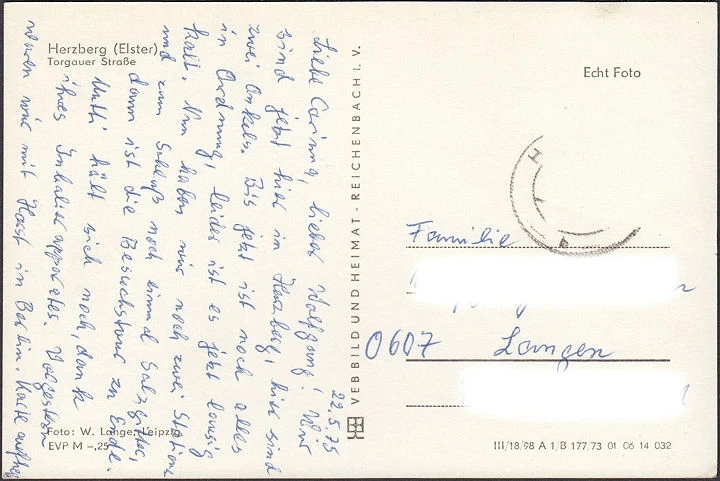 Herzberg (Elster)
Torgauer Straße
22.5.75
Liebe Carina, lieber Wolfgang! Wir
sind jetzt hier in Herzberg, hier sind
zwei Onkels. Bis jetzt ist noch alles
in Ordnung, leider ist es jetzt lausig
kalt. Nun haben wir noch zwei Stationen
und zum Schluß noch einmal Salzgitter,
dann ist die Besuchstour zu Ende.
Mutti hält sich noch, dank
ihres Inhalierapparates. Vorgestern
waren wir mit Horst in Berlin. Karte
Foto: W. Lange, Leipzig
EVP M –,25
VEB BILD UND HEIMAT · REICHENBACH I. V.
Echt Foto
Familie
0607 Langen
III/18/98 A 1/B 177/73 01 06 14 032